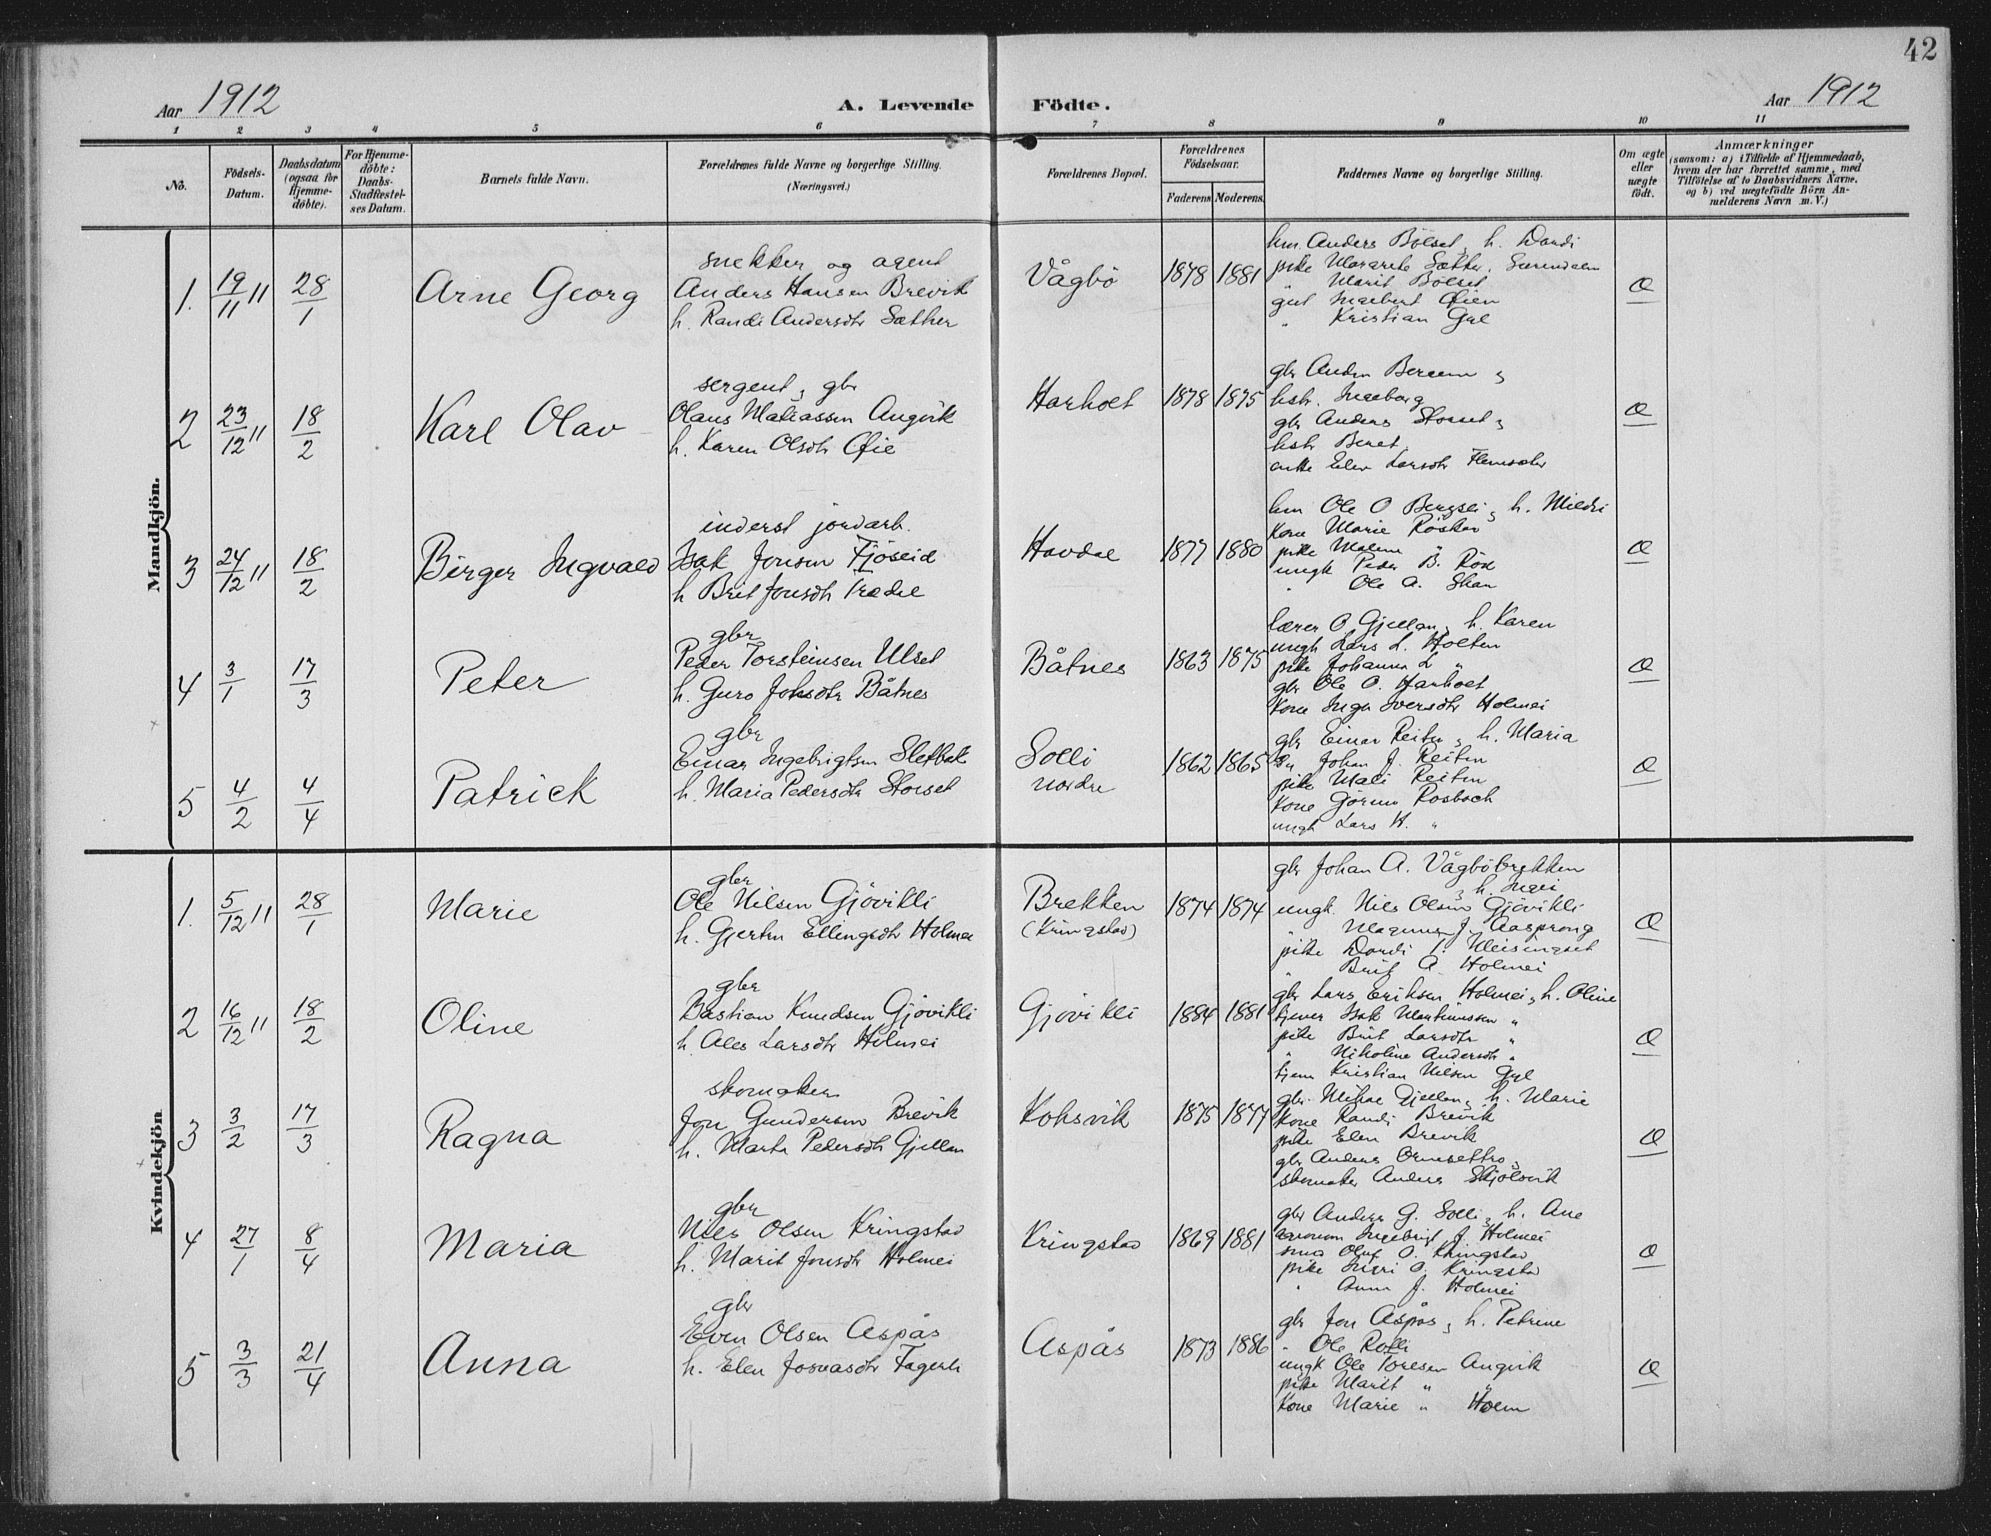 42
Aar 1912 A. Levende Födte. Aar 1912
1 2 3 4 5 6 7 8 9 10 11
No. Födsels-Datum. Daabsdatum (ogsaa for Hjemme-döbte). For Hjemme-döbte: Daabs-Stadfæstel-ses Datum. Barnets fulde Navn. Forældrenes fulde Navne og borgerlige Stilling. (Næringsvei.) Forældrenes Bopæl. Forældrenes Födselsaar. Faderens Moderens Faddernes Navne og borgerlige Stilling. Om ægte eller uægte födt. Anmærkninger (saasom: a) i Tilfælde af Hjemmedaab, hvem der har forrettet samme, med Tilföielse af to Daabsvidners Navne, og b) ved uægtefödte Börn An-melderens Navn m. V.)
Mandkjön.
1. 19/11 11 28/1 Arne Georg
snekker og agent
Anders Hansen Brevik
h. Randi Andersdtr Sæther
Vågbö 1878 1881
km. Anders Bölset, h. Dordi
pike Margrete Sætter, Surendalen
" Marit Bölset
gut Ingebert Öien
" Kristian Gyl
Æ
2 23/12 11 18/2 Karl Olav
sergent, gbr
Olaus Matiassen Angvik
h. Karen Olsdtr Öie
Harhoet 1878 1875
gbr Anders Bergem,
hstr. Ingeborg
gbr Anders Storset,
hstr Beret
enke Elen Larsdtr Flemsæter
Æ
3 24/12 11 18/2 Birger Ingvald
inderst jordarb.
Isak Jonsen Fjöseid
h Brit Jonsdtr Trædal
Havdal 1877 1880
km Ole O Bergsli, h. Mildri
Kone Marie Röskar
pike Malene "
ungk Peder B. Röd
" Ole A. Skar
Æ
4 3/1 17/3 Peter
gbr
Peder Torsteinsen Ulset
h. Guro Johsdtr Båtnes
Båtnes 1863 1875
lærer O Gjellan, h. Karen
ungk Lars L. Holten
pike Johanna L "
gbr Ole O. Harhoet
Kone Inga Iversdtr Holmei
Æ
5 4/2 4/4 Patrick
gbr
Einar Ingebrigtsen Sletbak
h. Maria Pedersdtr Storset
Solli
nordre
1862 1865
gbr Einar Reiten, h. Maria
Johan J. Reiten
pike Mali Reiten
Kone Görine Rosbach
ungk Lars H. "
Æ
Kvindekjön
1. 5/12 11 28/1 Marie
gbr
Ole Nilsen Gjövikli
h. Gjertru Ellingsdtr Holmei
Brekken
(Kringstad)
1874 1874
gbr Johan A. Vågböbrekken
, h. Ingri
ungk. Nils Olsen Gjövikli
" Magnus J. Aasprong
pike Dordi I. Meisingset
" Brit A. Holmei
Æ
2 16/12 11 18/2 Oline
gbr
Bastian Knudsen Gjövikli
h. Ales Larsdtr Holmei
Gjövikli 1884 1881
gbr Lars Eriksen Holmei, h. Oline
tjener Isak Martinussen "
pike Brit Larsdtr "
" Nikoline Andersdtr "
tjener Kristian Nilsen Gyl
Æ
3 3/2 17/3 Ragna
skomaker
Jon Gundersen Brevik
h. Marta Pedersdtr Gjellan
Kohsvik 1875 1877
gbr. Mikal Gjellan, h. Marie
Kone Randi Brevik
pike Elen Brevik
gbr Anders Ormsettro,
skomaker Anders Skjölsvik
Æ
4 27/1 8/4 Maria
gbr
Nils Olsen Kringstad
h. Marit Jonsdtr Holmei
Kringstad 1869 1881
gbr Anders G. Solli, h. Ane
Ingebrigt J. Holmei
Oluf O. Kringstad
pike Ingri O. Kringstad
" Anne J. Holmei
Æ
5 3/3 21/4 Anna
gbr
Even Olsen Aspås
h. Elen Josvasdtr Fagerli
Aspås 1873 1886
gbr Jon Aspås, h. Petrine
" Ole Rolli
ungk Ole Toresen Angvik
pike Marit " "
Kone Marie " Holm
Æ